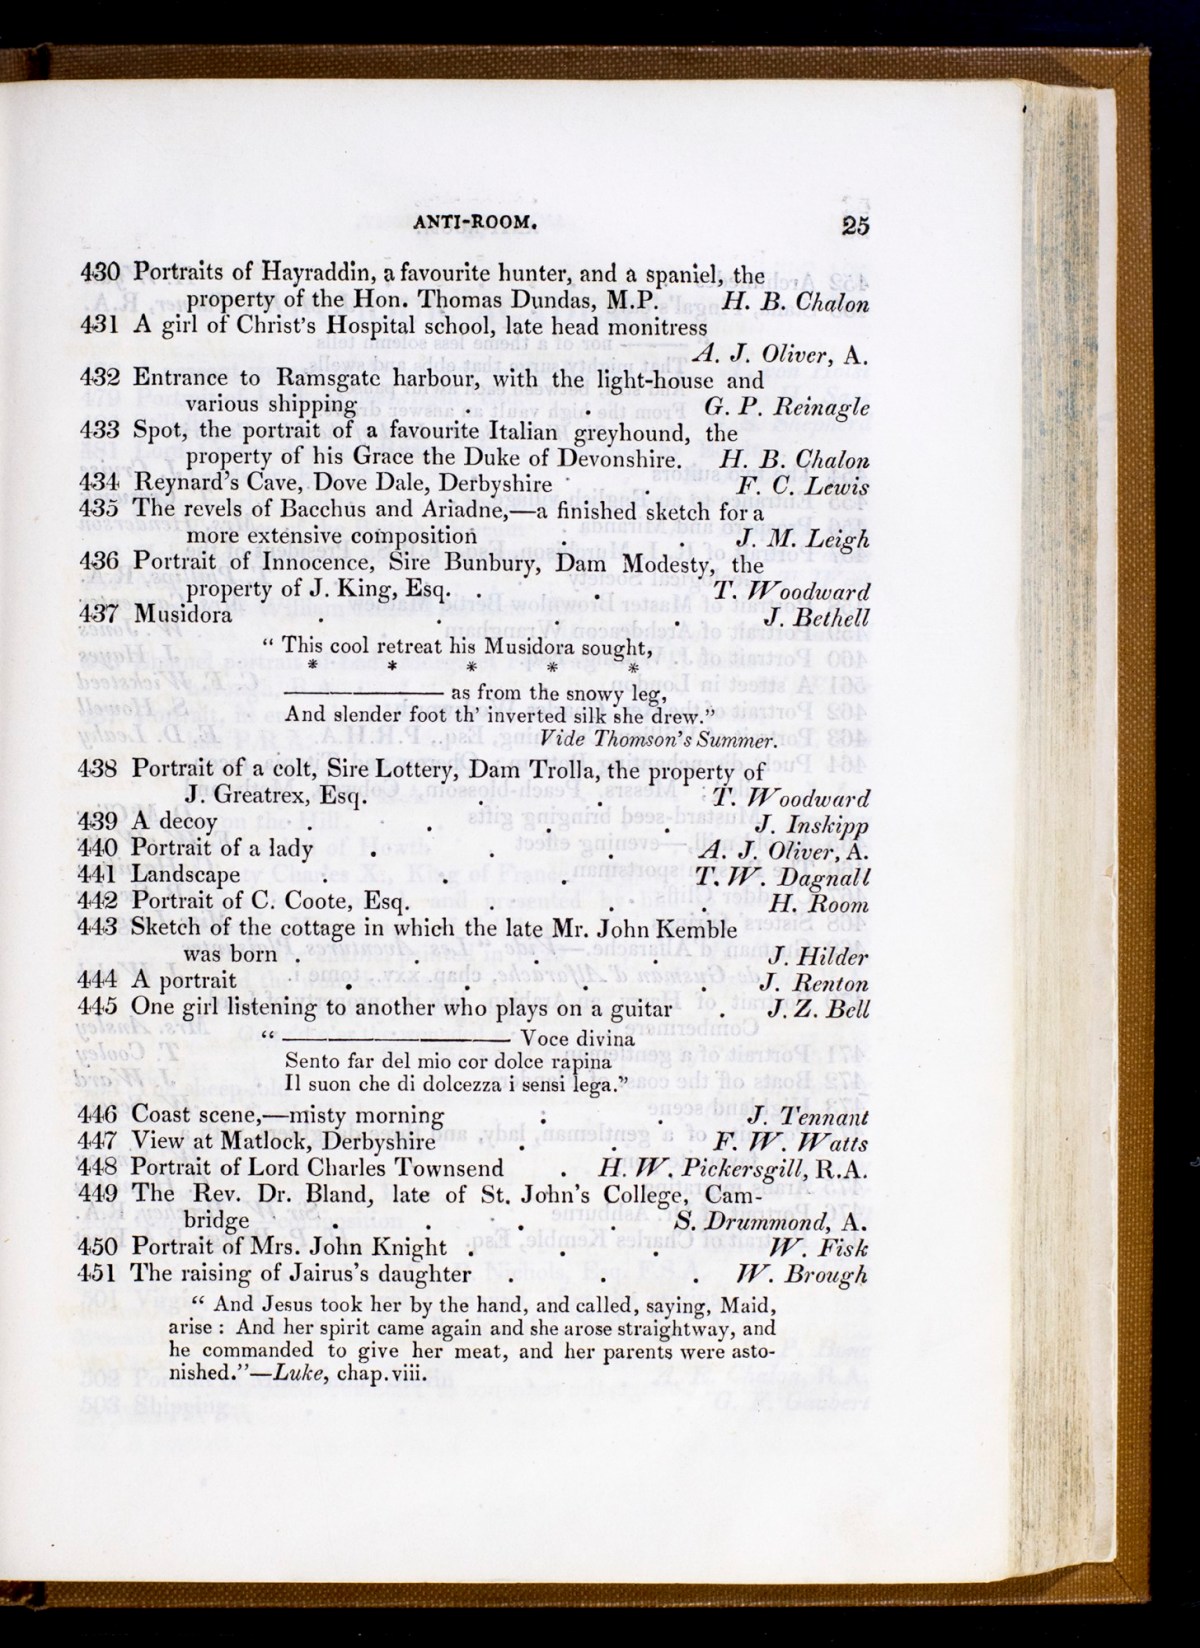 ANTI-ROOM. 25
430 Portraits of Hayraddin, a favourite hunter, and a spaniel, the
property of the Hon. Thomas Dundas, M.P. H. B. Chalon
431 A girl of Christ's Hospital school, late head monitress
A. J. Oliver, A.
432 Entrance to Ramsgate harbour, with the light-house and
various shipping . . G. P. Reinagle
433 Spot, the portrait of a favourite Italian greyhound, the
property of his Grace the Duke of Devonshire. H. B. Chalon
434 Reynard's Cave, Dove Dale, Derbyshire . . F. C. Lewis
435 The revels of Bacchus and Ariadne,—a finished sketch for a
more extensive composition . . J. M. Leigh
436 Portrait of Innocence, Sire Bunbury, Dam Modesty, the
property of J. King, Esq. . . T. Woodward
437 Musidora . . . . J. Bethell
" This cool retreat his Musidora sought,
* * * * *
———————— as from the snowy leg,
And slender foot th' inverted silk she drew."
Vide Thomson's Summer.
438 Portrait of a colt, Sire Lottery, Dam Trolla, the property of
J. Greatrex, Esq. . . . T. Woodward
439 A decoy . . . . J. Inskipp
440 Portrait of a lady . . . A. J. Oliver, A.
441 Landscape . . . T. W. Dagnall
442 Portrait of C. Coote, Esq. . . . H. Room
443 Sketch of the cottage in which the late Mr. John Kemble
was born . . . . J. Hilder
444 A portrait . . . . J. Renton
445 One girl listening to another who plays on a guitar . J. Z. Bell
" ———————— Voce divina
Sento far del mio cor dolce rapina
Il suon che di dolcezza i sensi lega."
446 Coast scene,—misty morning . . J. Tennant
447 View at Matlock, Derbyshire . . F. W. Watts
448 Portrait of Lord Charles Townsend . H. W. Pickersgill, R.A.
449 The Rev. Dr. Bland, late of St. John's College, Cam-
bridge . . . . S. Drummond, A.
450 Portrait of Mrs. John Knight . . . W. Fisk
451 The raising of Jairus's daughter . . . W. Brough
" And Jesus took her by the hand, and called, saying, Maid,
arise : And her spirit came again and she arose straightway, and
he commanded to give her meat, and her parents were asto-
nished."—Luke, chap. viii.